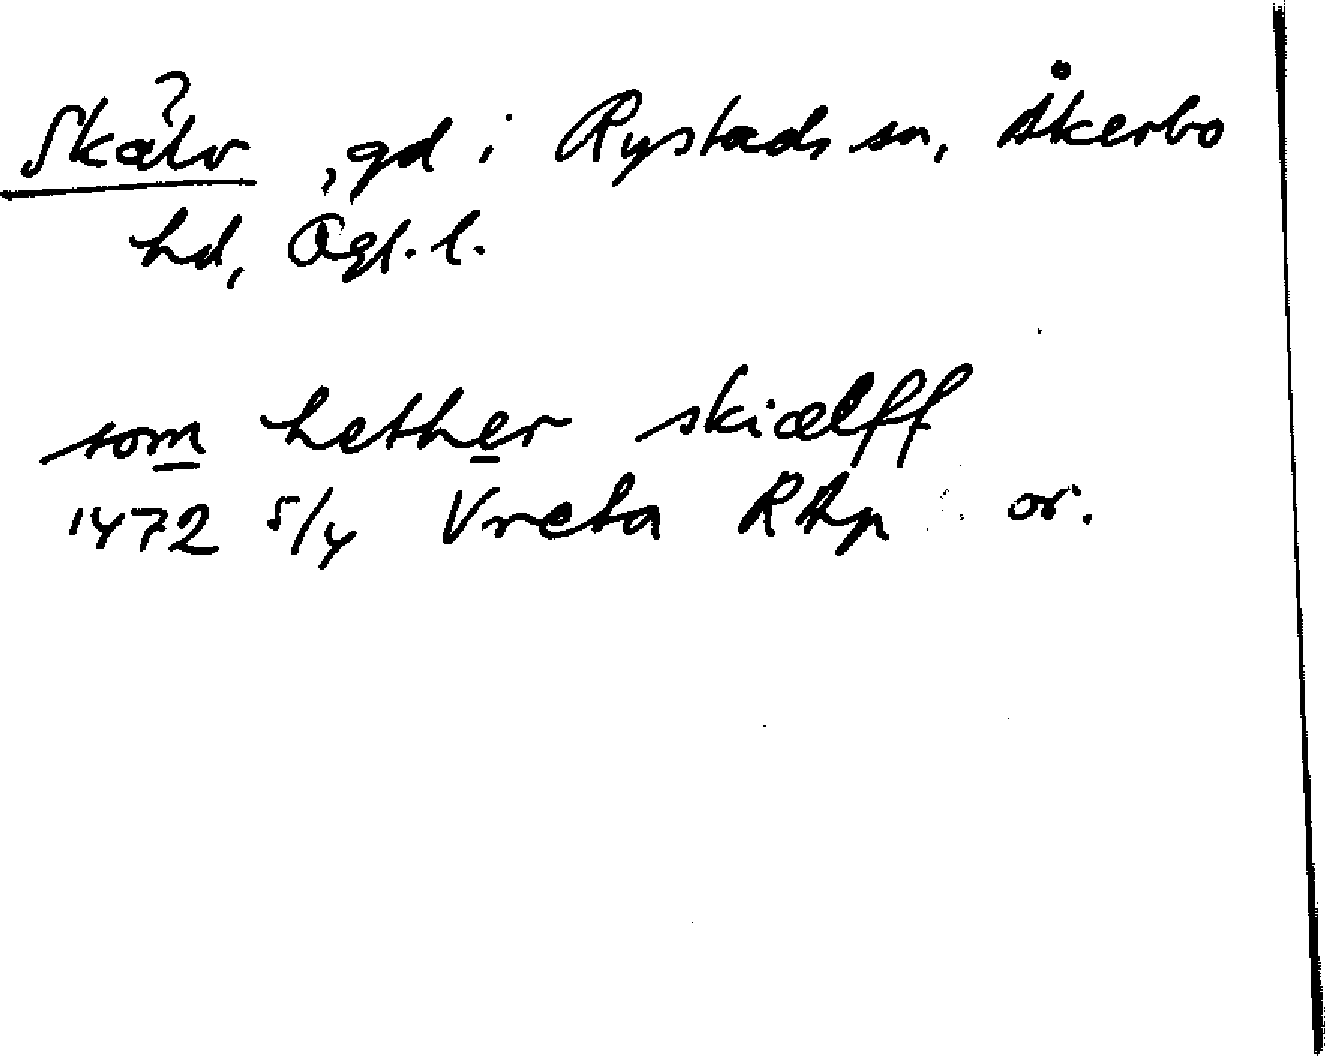 Skälv, gd i Rystads sn, Åkerbo
hd, Ögl. l.
som hether skiælff
1472 5/4 Vreta RAp or.